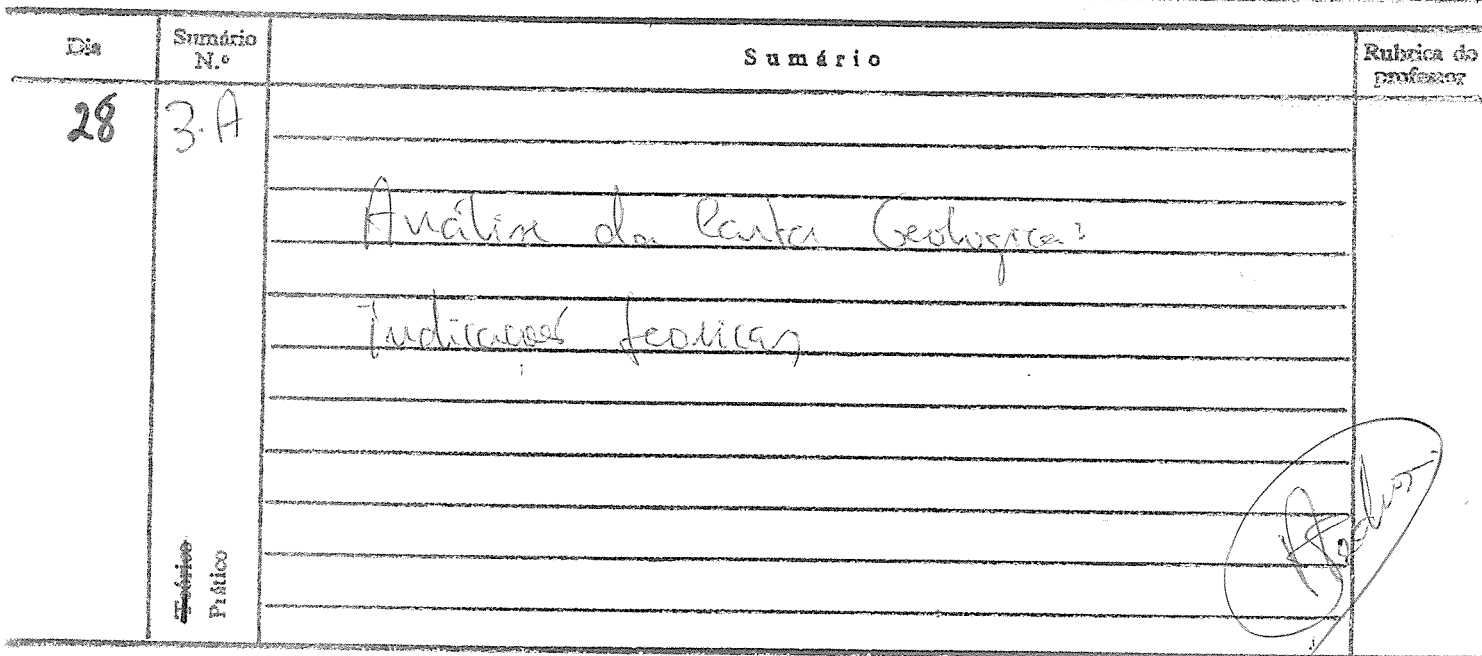 Dia
Sumário N.º
Sumário
Rubrica do professor
28
3.A
Análise da Carta Geologica:
Indicacoes teoricas
Teórico
Prático